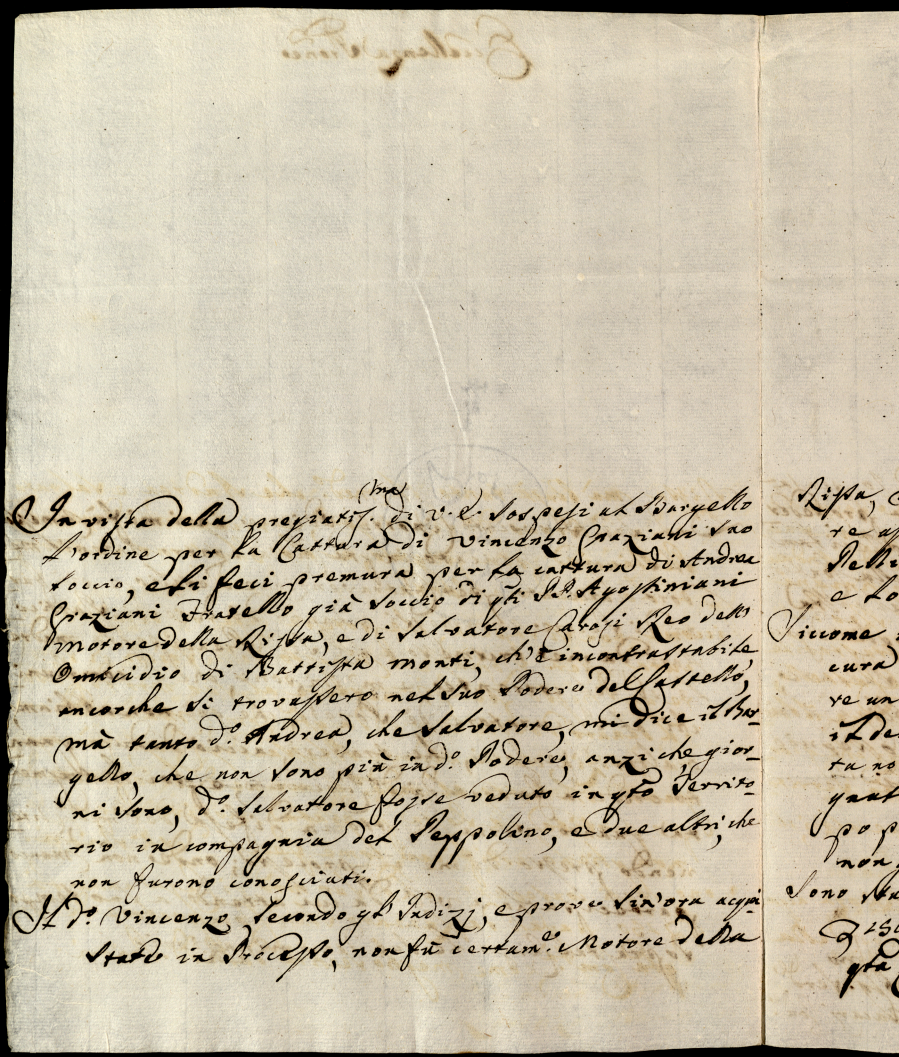 In vista della pregiatis.ma di V. E. sospesi al Bargello
l'ordine per la Cattura di Vincenzo Graziani suo
soccio, e li feci premura per la cattura di Andrea
Graziani Fratello già soccio di gli P.P. Agostiniani
Motore della Rissa, e di Salvatore Carosi Reo dell'
Omicidio di Battista Monti, ch'è incontrastabile
ancorche si trovassero nel suo Podere del Castello,
mà tanto d.o Andrea, che Salvatore, mi dice il Bar-
gello, che non sono più in d.o Podere, anzi che gior-
ni sono, d.o Salvatore fosse veduto in qsto Territo-
rio in compagnia del Peppolino, e due altri, che
non furono conosciuti.
Il d.o Vincenzo, secondo gl' Indizj, e prove sin'ora acqui-
state in Processo, non fù certam.e Motore della
Rissa,
re
e
Siccome
cura
re un
il de
ta no
gnat
po p
non
Sono
qta